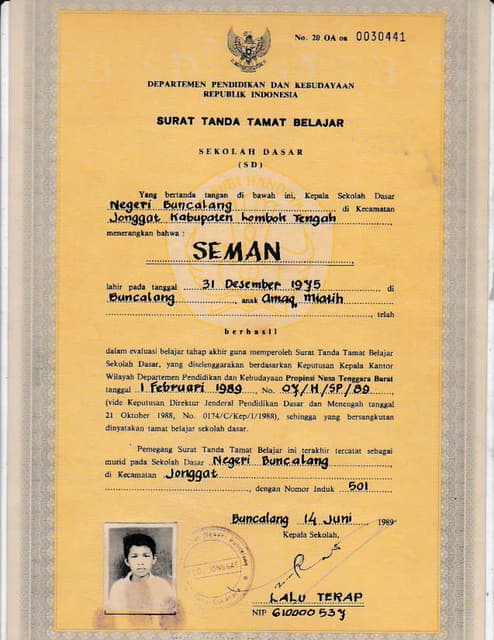 No. 20 OA oa 0030441
DEPARTEMEN PENDIDIKAN DAN KEBUDAYAAN
REPUBLIK INDONESIA
SURAT TANDA TAMAT BELAJAR
SEKOLAH DASAR
(SD)
Yang bertanda tangan di bawah ini, Kepala Sekolah Dasar
Negeri Buncalang di Kecamatan
Jonggat Kabupaten Lombok Tengah
menerangkan bahwa :
SEMAN
lahir pada tanggal 31 Desember 1975 di
Buncalang, anak Amaq Miatih
, telah
berhasil
dalam evaluasi belajar tahap akhir guna memperoleh Surat Tanda Tamat Belajar
Sekolah Dasar, yang diselenggarakan berdasarkan Keputusan Kepala Kantor
Wilayah Departemen Pendidikan dan Kebudayaan Propinsi Nusa Tenggara Barat
tanggal 1 Februari 1989, No. 07/H/SP/89
(vide Keputusan Direktur Jenderal Pendidikan Dasar dan Menengah tanggal
21 Oktober 1988, No. 0174/C/Kep/I/1988), sehingga yang bersangkutan
dinyatakan tamat belajar sekolah dasar.
Pemegang Surat Tanda Tamat Belajar ini terakhir tercatat sebagai
murid pada Sekolah Dasar Negeri Buncalang
di Kecamatan Jonggat
, dengan Nomor Induk 501
Buncalang 14 Juni 1989
Kepala Sekolah,
JONGGAT
LALU TERAP
NIP 610000537